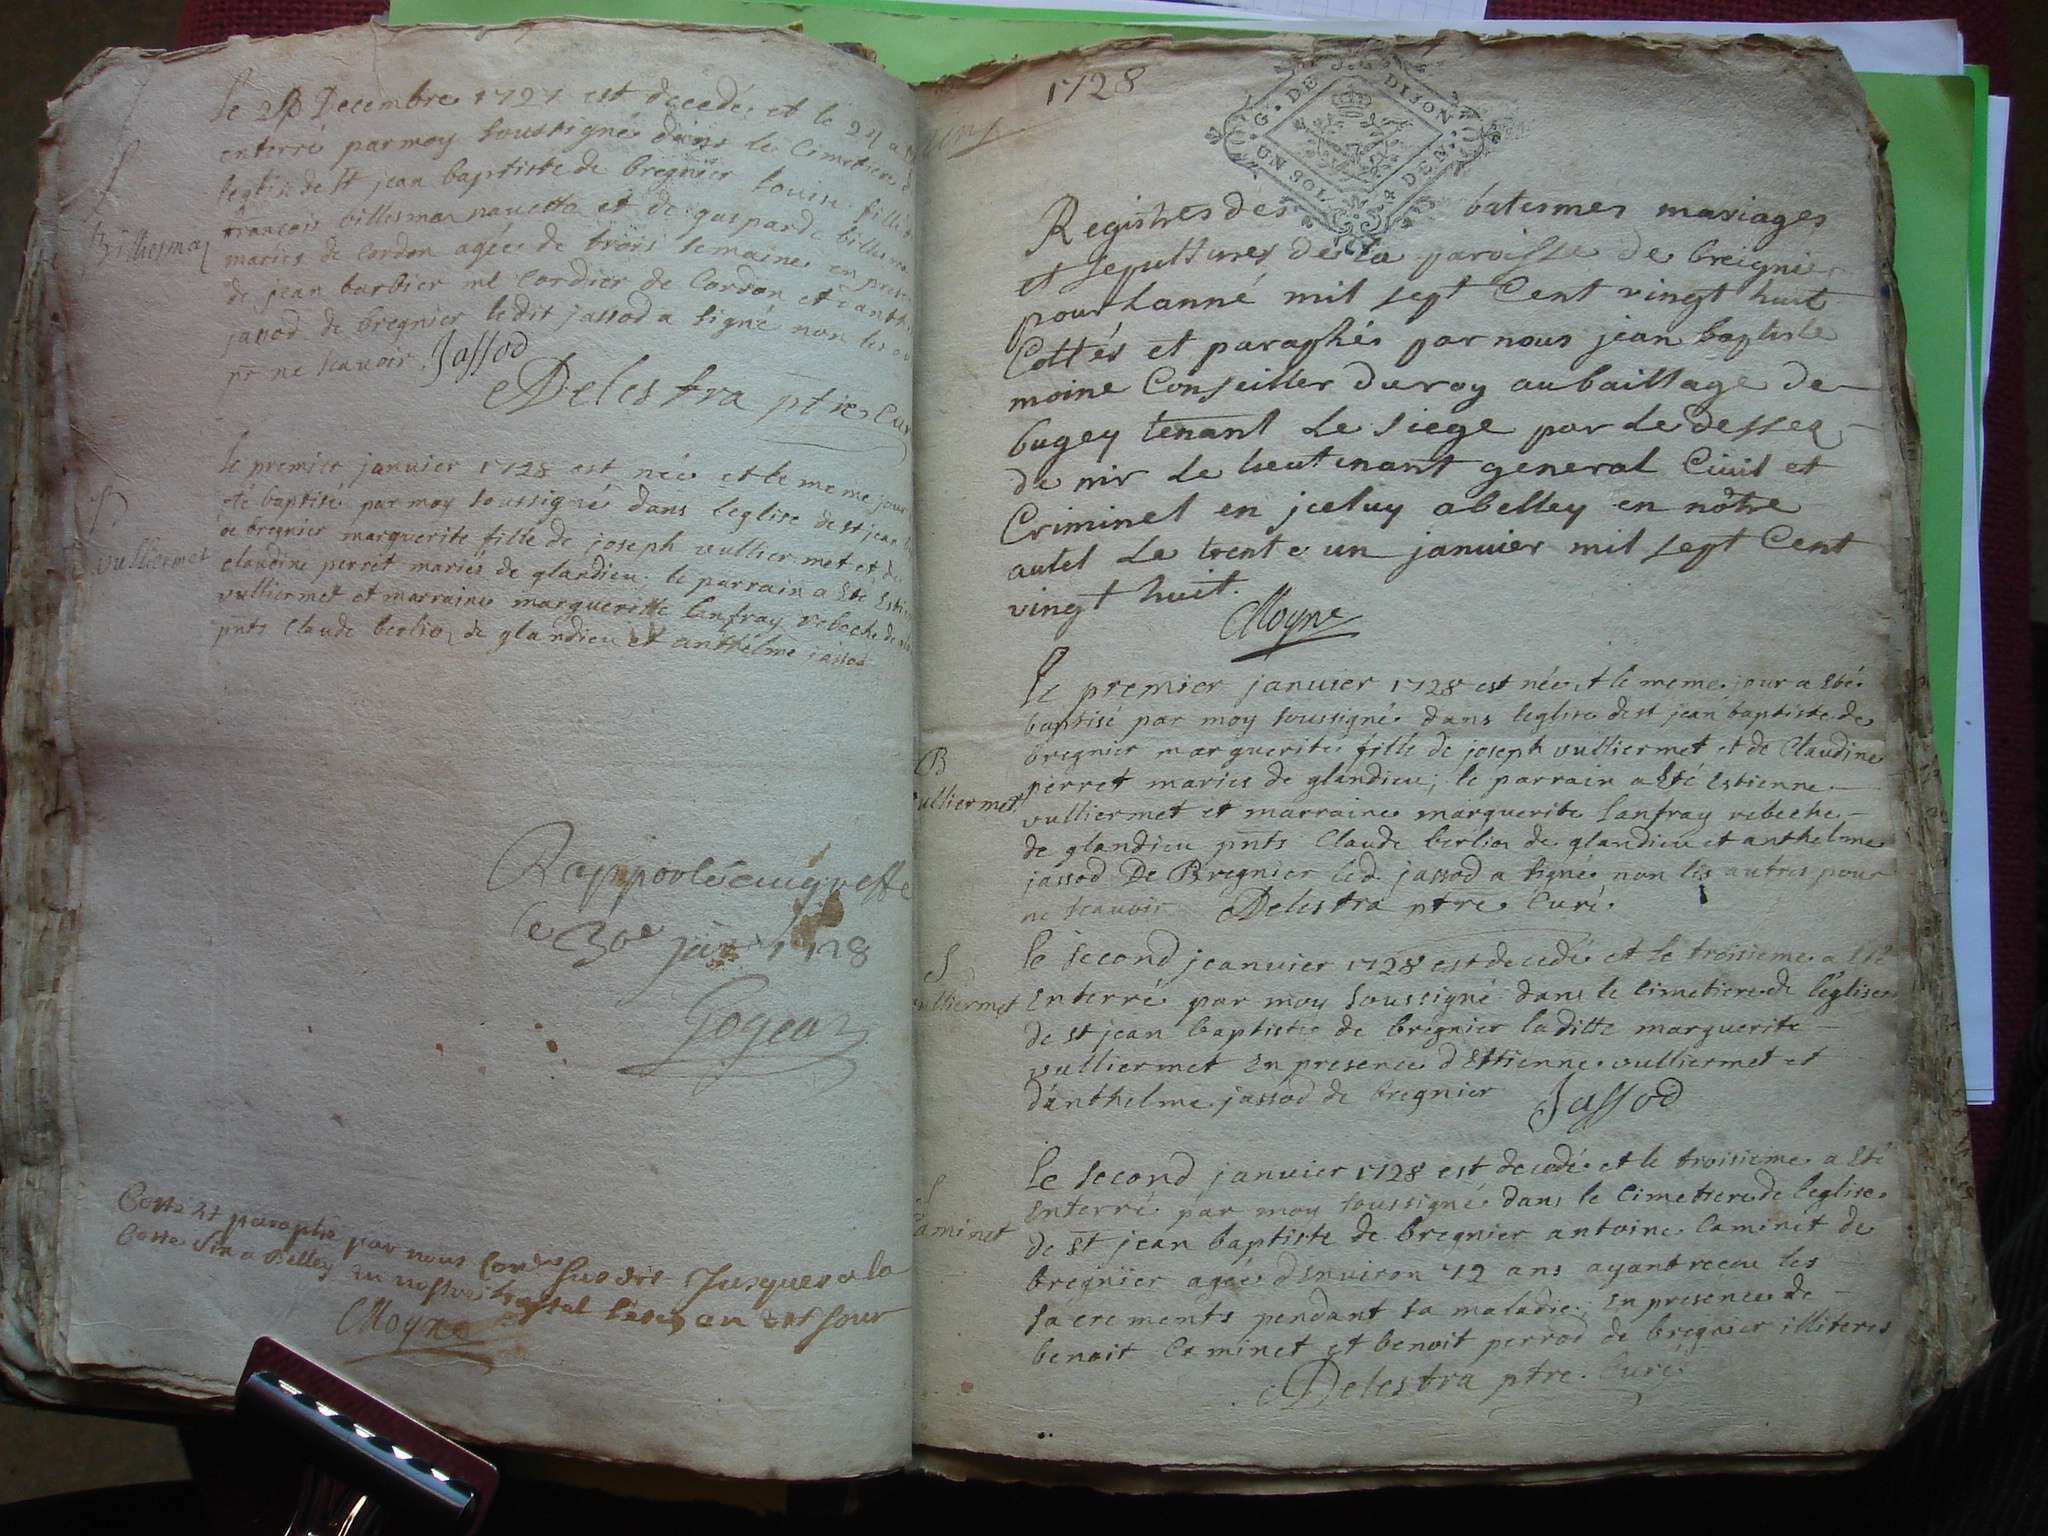 Le Decembre 1727 est decedé et le 24 a
enterré par moy soussigné dans le Cimetiere
leglise de st jean baptiste de bregnier Louise fille
francois billiemaz navette et de gasparde
mariés de Cordon agée de trois semaines en
de jean barbier me Cordier de Cordon et
jassod de bregnier ledit jassod a signé non les
pr ne scavoir. Jassod
Delestra ptre Curé
S
Billiemaz
Le premier janvier 1728 est née et le meme jour
été baptisé par moy soussigné dans leglise de st jean
de bregnier marguerite fille de joseph vulliermet et de
claudine perret mariés de glandieu. le parrain a Eté
vulliermet et marraine marguerite Lanfray rebeche de
pnts Claude berlioz de glandieu et anthelme jassod
vulliermet
Rapporté au greffe
le 30e janv 1728
Gogeaz
Cotté et paraphé par nous Conser susdit Jusques a la
Cotte a Belley en nostre hostel an et jour
Moyne
1728
G. DE DIJON
UN SOL 4 DEN.
Registres des batesmes mariages
et sepultures de la paroisse de breignier
pour Lanné mil sept Cent vingt huit
Cottés et paraphés par nous jean baptiste
moine Conseiller du roy au baillage de
bugey tenant Le siege par Le
de mr Le lieutenant general Civil et
Criminel en jceluy a belley en nôtre
autel Le trente un janvier mil sept Cent
vingt huit.
Moyne
Le premier janvier 1728 est née et le meme jour a Eté
baptisé par moy soussigné dans leglise de st jean baptiste de
bregnier marguerite fille de joseph vulliermet et de Claudine
perret mariés de glandieu; le parrain a Eté Estienne
vulliermet et marraine marguerite Lanfray rebeche
de glandieu pnts Claude berlioz de glandieu et anthelme
jassod De Bregnier led. jassod a signé non les autres pour
ne scavoir Delestra ptre Curé.
B
vulliermet
Le second jeanvier 1728 est decedé et le troisieme a Eté
Enterré par moy soussigné dans le Cimetiere de l'église
de st jean baptiste de bregnier la ditte marguerite
vulliermet En presence d'Estienne vulliermet et
d'anthelme jassod de bregnier Jassod
S
vulliermet
Le second janvier 1728 est decedé et le troisieme a Eté
Enterré par moy soussigné dans le Cimetiere de leglise
de st jean baptiste de bregnier antoine Caminet de
bregnier agée d'Environ 72 ans ayant receu les
sacrements pendant sa maladie; En presence de
benoit Caminet et benoit perrod de bregnier illiteres
Delestra ptre. Curé.
S
Caminet